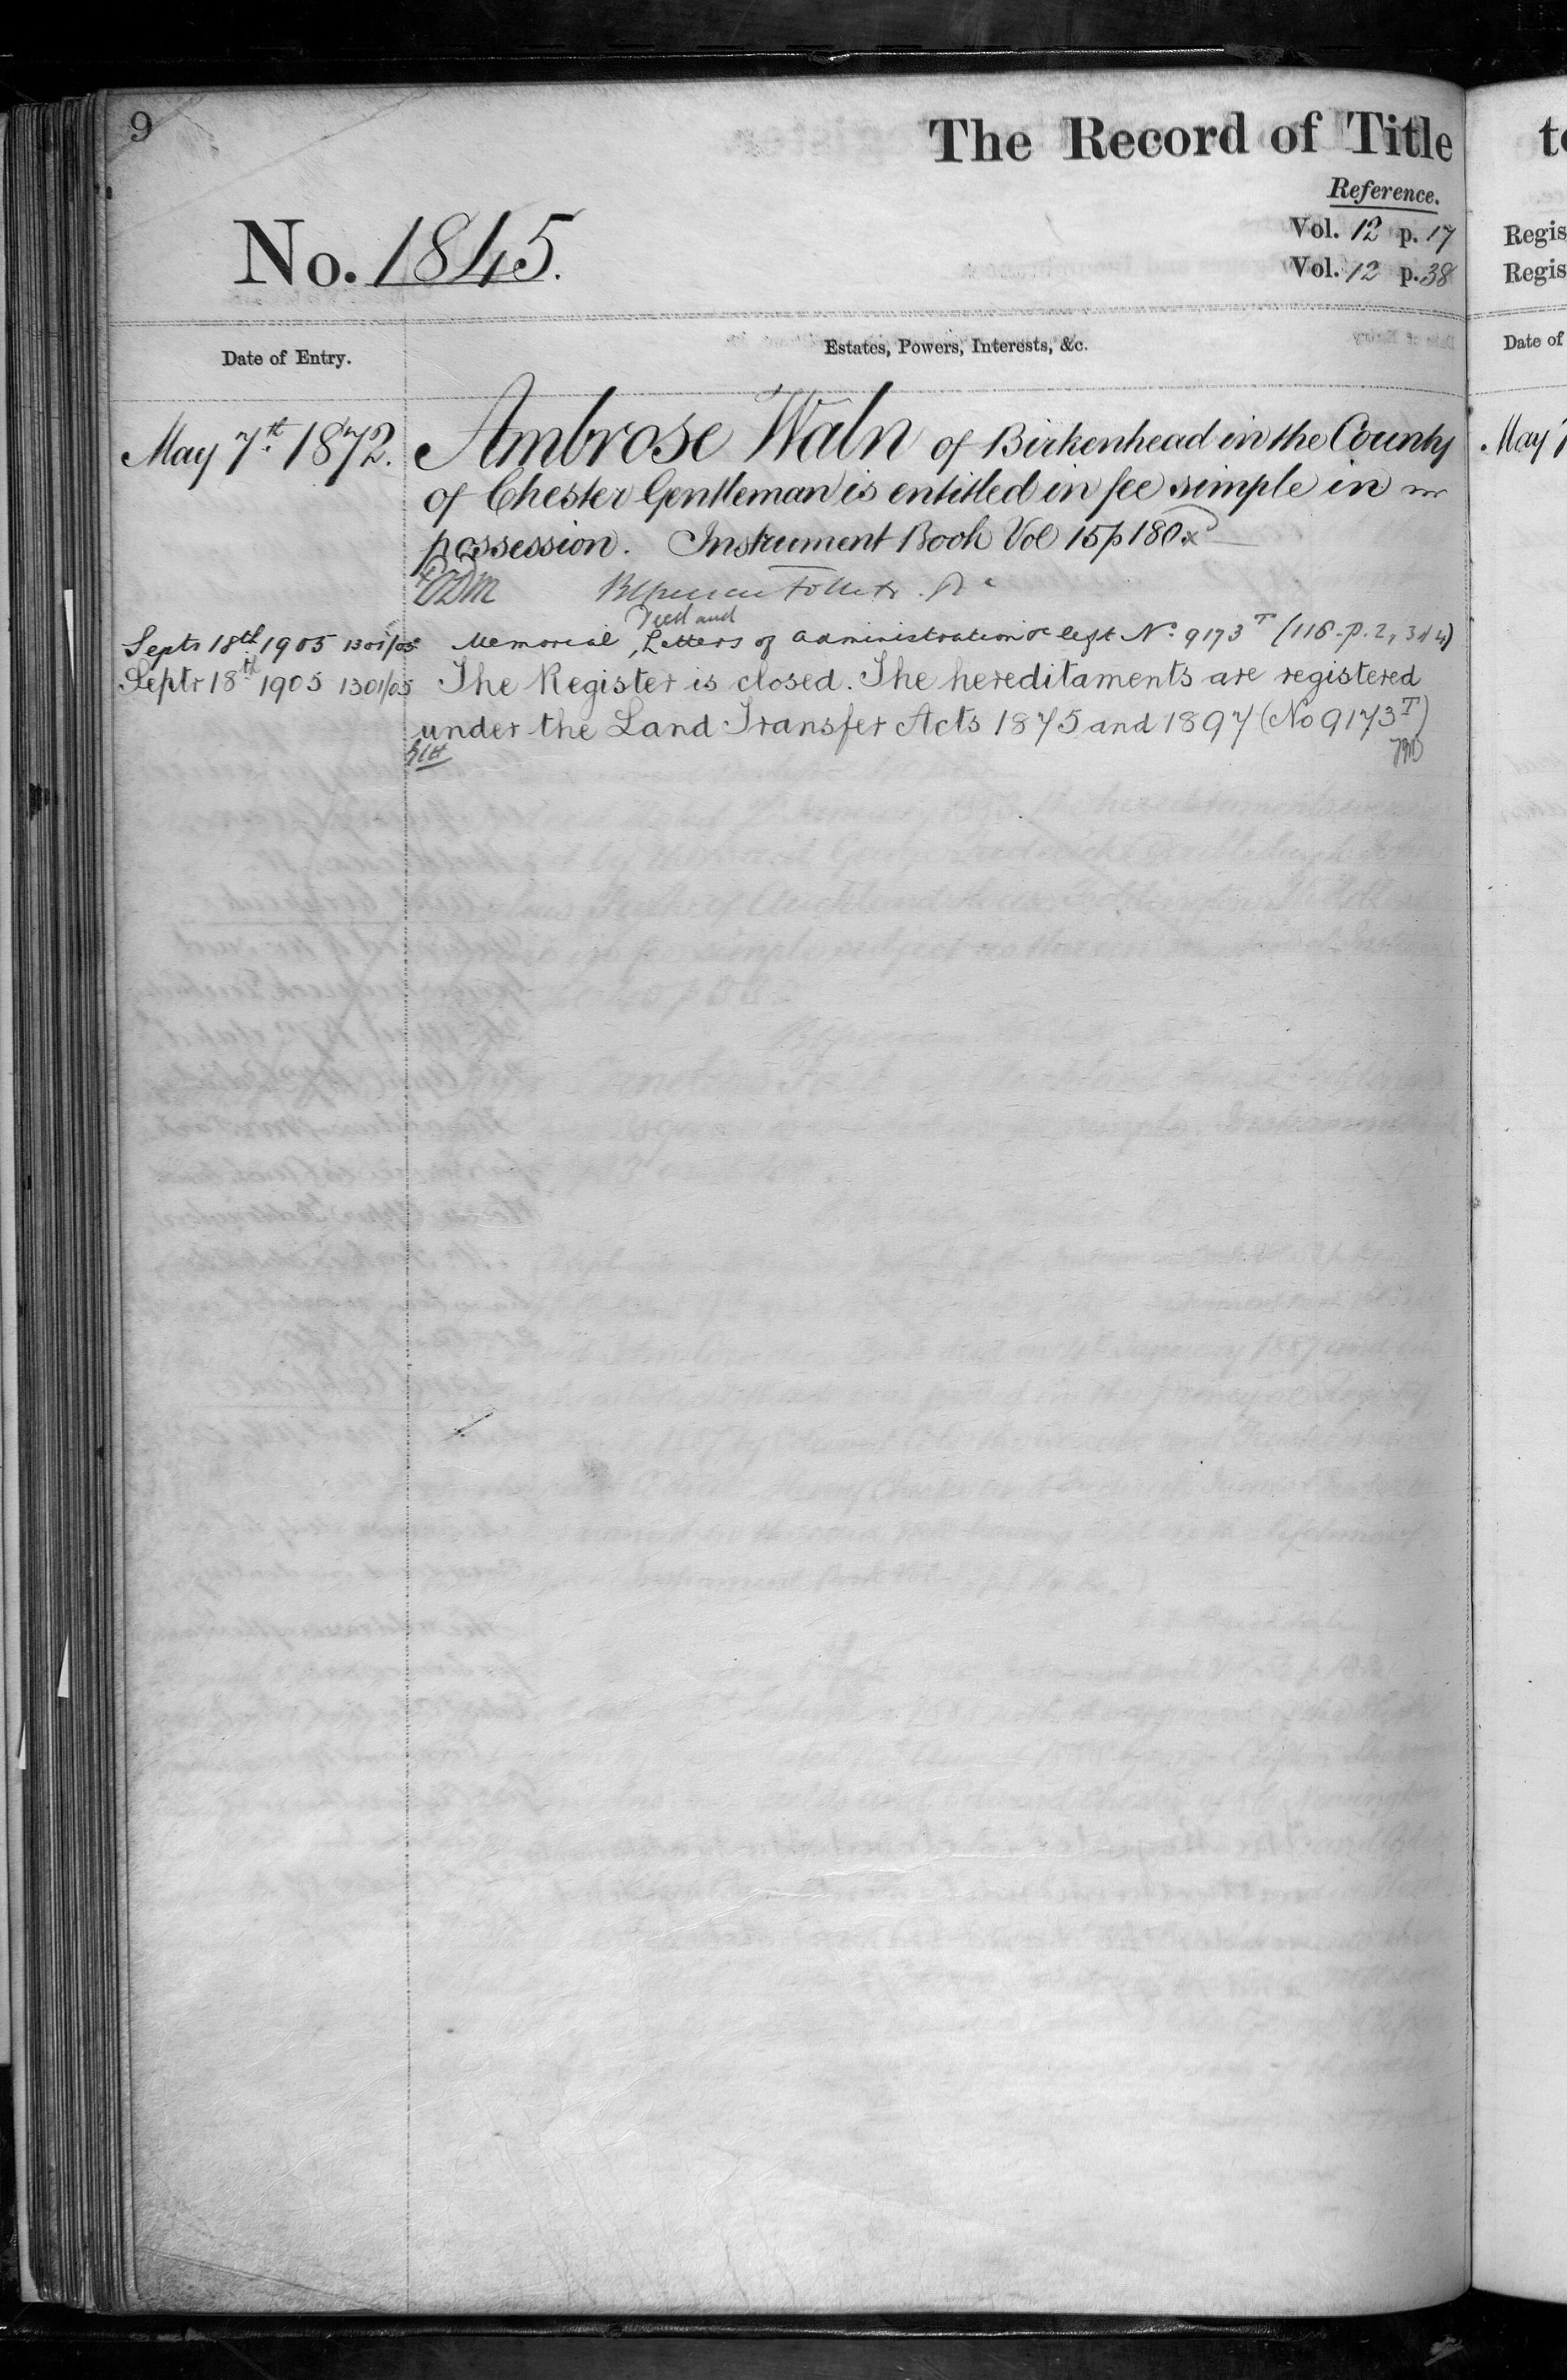 9
The Record of Title
Reference.
No. 1845.
Vol. 12 p. 17
Vol. 12 p. 38
Date of Entry.
Estates, Powers, Interests, &c.
May 7th 1872.
Ambrose Waln of Birkenhead in the County
of Chester Gentleman is entitled in fee simple in
possession. Instrument Book Vol 15 p 180.
Deed and
Septr 18th 1905 1301/05 Memorial, Letters of Administration &c left No. 9173 T (116-p. 2, 3 & 4)
Septr 18th 1905 1301/05 The Register is closed. The hereditaments are registered
under the Land Transfer Acts 1875 and 1897 (No 9173 T)
Regis
Regis
Date of
May 7